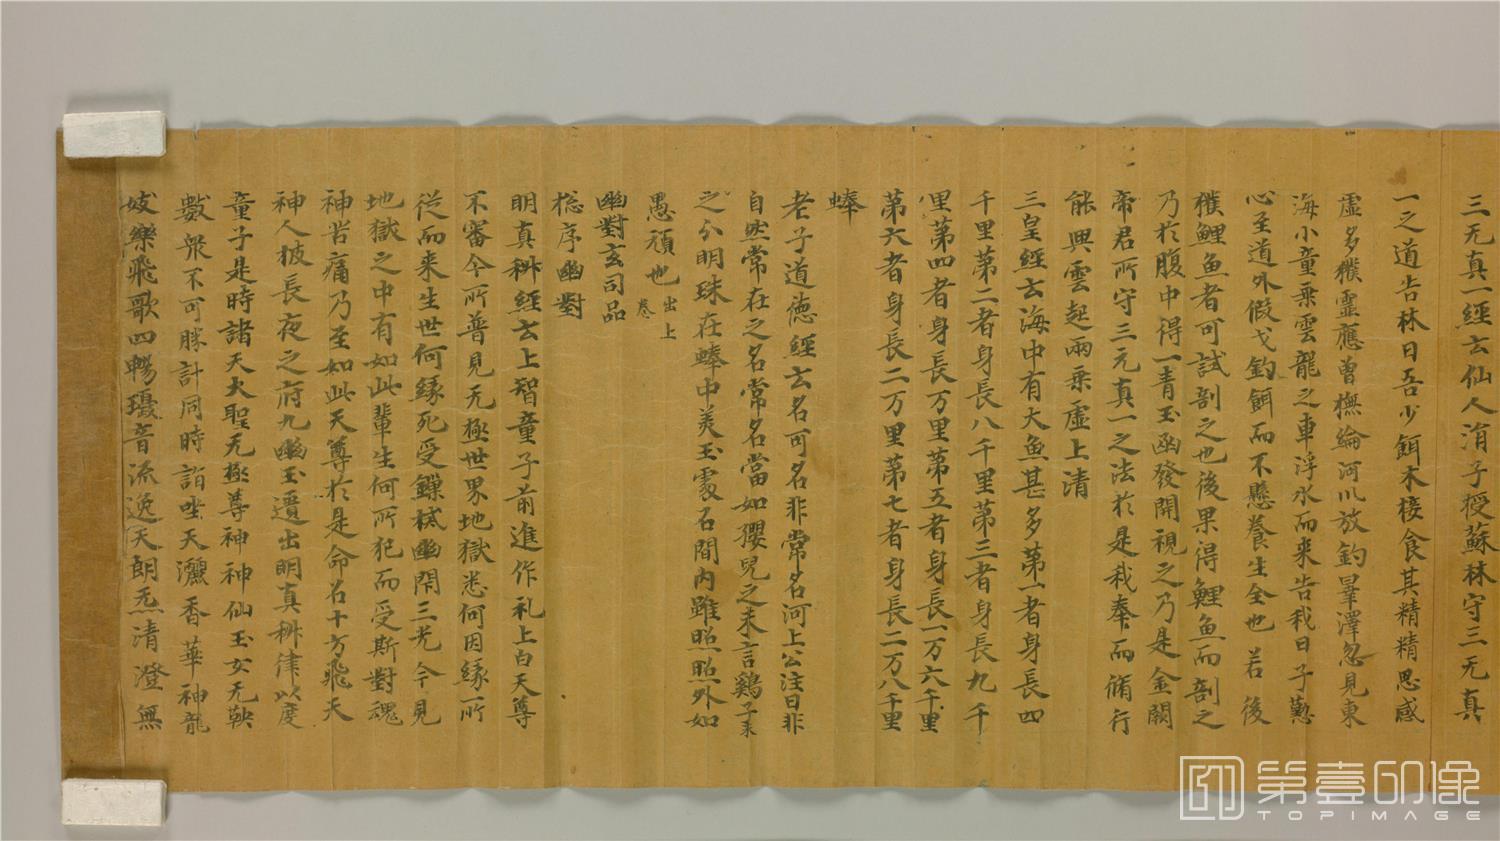 三元真一經云仙人涓子授蘇林守三元真
一之道告林曰吾少餌朮後食其精精思感
虛多獲靈應曾撫綸河川放釣群澤忽見東
海小童乗雲龍之車浮水而来告我曰子懃
心至道外假戈釣餌而不懸養生全也若後
獲鯉魚者可試剖之也後果得鯉魚而剖之
乃於腹中得一青玉函發開視之乃是金闕
帝君所守三元真一之法於是我奉而脩行
能興雲起雨乗虛上清
三皇經云海中有大魚甚多第一者身長四
千里第二者身長八千里第三者身長九千
里第四者身長万里第五者身長一万六千里
第六者身長二万里第七者身長二万八千里
蜯
老子道德經云名可名非常名河上公注曰非
自然常在之名常名當如孾兒之未言鷄子未
之分明珠在蜯中美玉處石間内雖照照外如
愚頑也出上卷
幽對玄司品
捴序幽對
明真科經云上智童子前進作礼上白天尊
不審今所普見无極世界地獄悉何因緣所
從而来生世何緣死受鏁械幽閇三光今見
地獄之中有如此輩生何所犯而受斯對魂
神苦痛乃至如此天尊於是命召十方飛天
神人披長夜之府九幽玉遺出明真科律以度
童子是時諸天大聖无極尊神神仙玉女无鞅
數衆不可勝計同時詣唑天灑香華神龍
妓樂飛歌四暢瓊音流逸天朗炁清澄無
第壹印像
TOPIMAGE